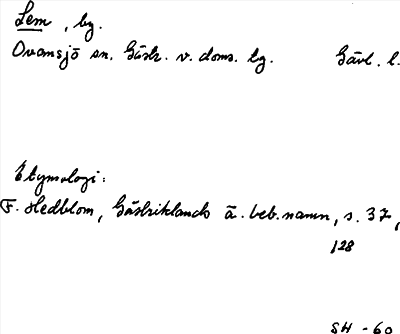 Lem, by.
Ovansjö sn. Gästr. v. doms. tg. Gävl. l.
Etymologi:
F. Hedblom, Gästriklands ä. beb.namn, s. 37,
128
SH -60